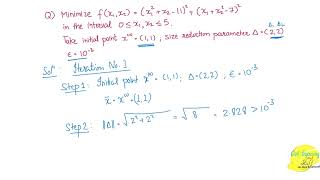 Q) Minimize f(x₁,x₂) = (x₁²+x₂-11)² + (x₁+x₂²-7)²
in the interval 0≤x₁,x₂≤5.
Δ₁ Δ₂
Take initial point x⁽⁰⁾ = (1,1), size reduction parameter Δ=(2,2)
ε = 10⁻³
Solⁿ: Iteration No. 1
Step 1: Initial point x⁽⁰⁾ = (1,1); Δ=(2,2), ε = 10⁻³
x̄ = x⁽⁰⁾ = (1,1)
Step 2: ||Δ|| = √2²+2² = √8 = 2.828 > 10⁻³